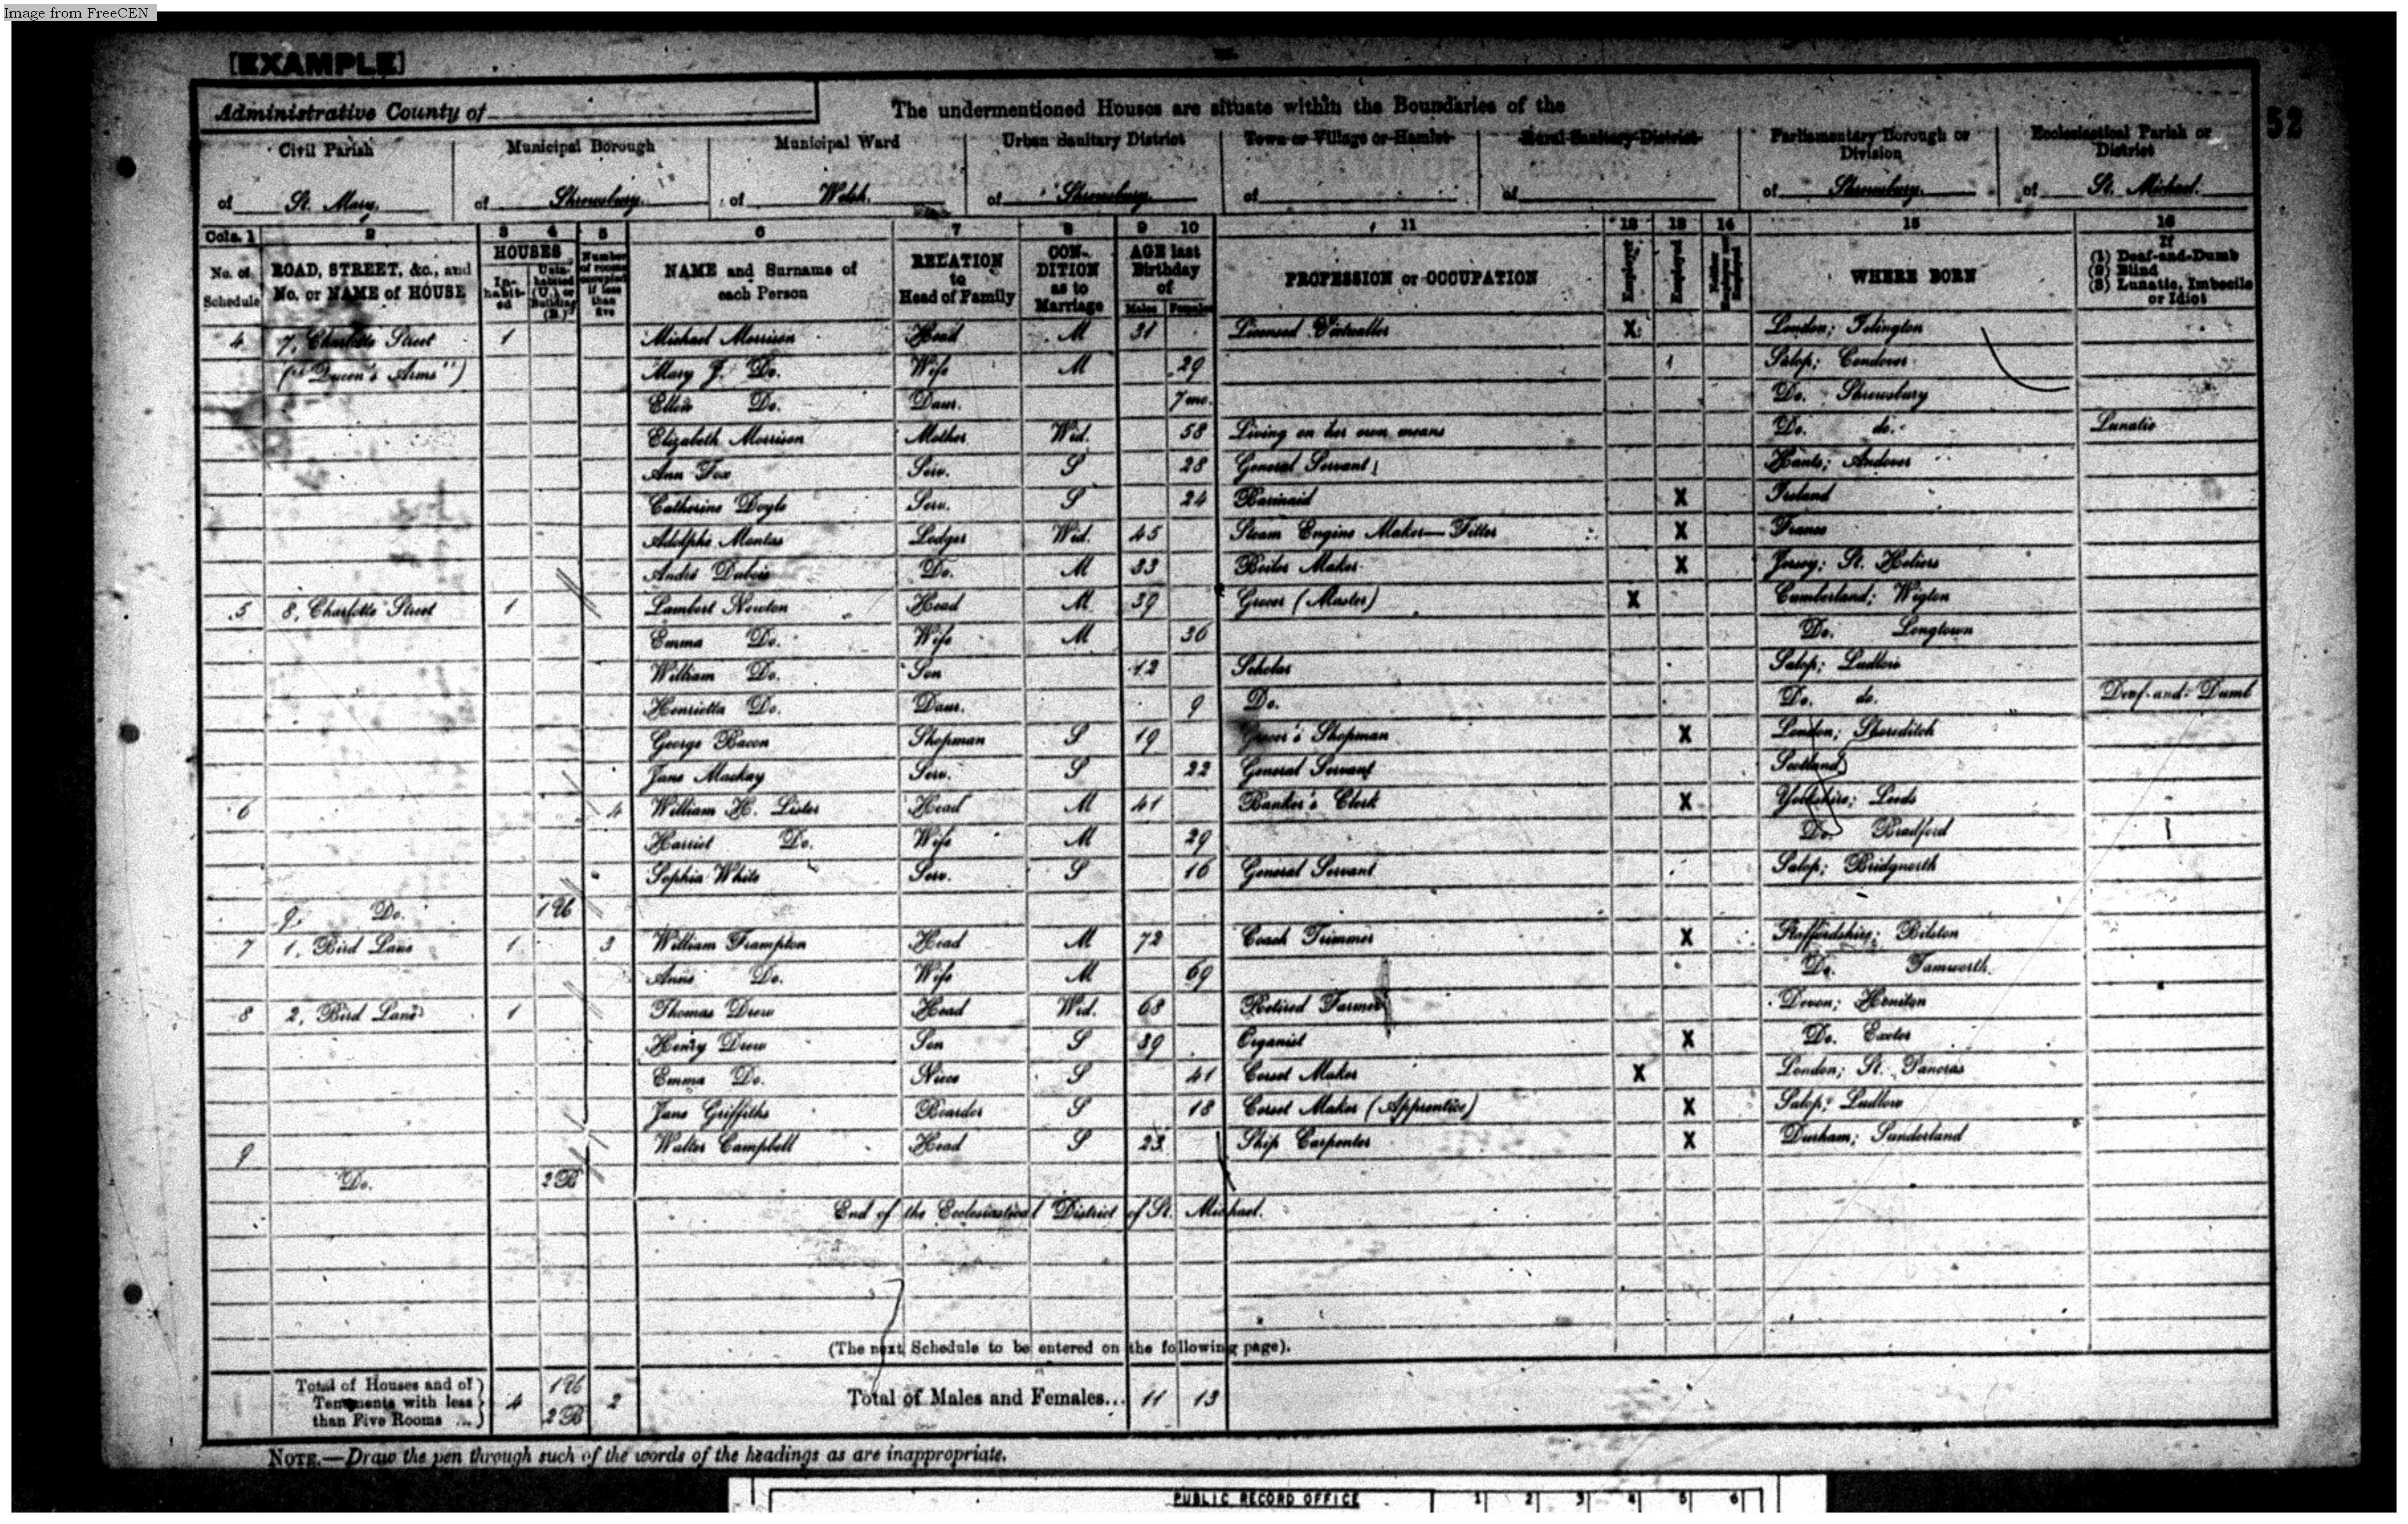 Image from FreeCEN
[EXAMPLE]
Administrative County of
The undermentioned Houses are situate within the Boundaries of the
52
Civil Parish Municipal Borough Municipal Ward Urban Sanitary District Town or Village or Hamlet Rural Sanitary District Parliamentary Borough or Division Ecclesiastical Parish or District
of St. Mary. of Shrewsbury. of Welsh. of Shrewsbury. of of of Shrewsbury. of St. Michael.
Cols. 1 2 3 4 5 6 7 8 9 10 11 12 13 14 15 16
No. of Schedule
ROAD, STREET, &c., and No. or NAME of HOUSE
HOUSES
Inhabited
Uninhabited (U.) or Building (B.)
Number of rooms occupied if less than five
NAME and Surname of each Person
RELATION to Head of Family
CONDITION as to Marriage
AGE last Birthday of
Males Females
PROFESSION or OCCUPATION
Employer
Employed
Neither Employer nor Employed
WHERE BORN
If
(1) Deaf-and-Dumb
(2) Blind
(3) Lunatic, Imbecile or Idiot
4 7, Charlotte Street 1 Michael Morrison Head M 31 Licensed Victualler X London; Islington
("Queen's Arms") Mary J. Do. Wife M 29 Salop; Condover
Ellen Do. Daur. 7 mo. Do. Shrewsbury
Elizabeth Morrison Mother Wid. 58 Living on her own means Do. do. Lunatic
Ann Fox Serv. S 28 General Servant Hants; Andover
Catherine Doyle Serv. S 24 Barmaid X Ireland
Adolphe Mantas Lodger Wid. 45 Steam Engine Maker—Fitter X France
André Dubois Do. M 33 Boiler Maker X Jersey; St. Heliers
5 8, Charlotte Street 1 Lambert Newton Head M 39 Grocer (Master) X Cumberland; Wigton
Emma Do. Wife M 36 Do. Longtown
William Do. Son 12 Scholar Salop; Ludlow
Henrietta Do. Daur. 9 Do. Do. do. Deaf-and-Dumb
George Bacon Shopman S 19 Grocer's Shopman X London; Shoreditch
Jane Mackay Serv. S 22 General Servant Scotland
6 4 William H. Lister Head M 41 Banker's Clerk X Yorkshire; Leeds
Harriet Do. Wife M 29 Do. Bradford
Sophia White Serv. S 16 General Servant Salop; Bridgnorth
9, Do. 1 U
7 1, Bird Lane 1 3 William Frampton Head M 72 Coach Trimmer X Staffordshire; Bilston
Anne Do. Wife M 69 Do. Tamworth
8 2, Bird Lane 1 Thomas Drew Head Wid. 68 Retired Farmer Devon; Honiton
Henry Drew Son S 39 Organist X Do. Exeter
Emma Do. Niece S 41 Corset Maker X London; St. Pancras
Jane Griffiths Boarder S 18 Corset Maker (Apprentice) X Salop; Ludlow
9 Walter Campbell Head S 23 Ship Carpenter X Durham; Sunderland
Do. 2 B
End of the Ecclesiastical District of St. Michael.
(The next Schedule to be entered on the following page).
Total of Houses and of Tenements with less than Five Rooms ... 4 1 U 2 B 2 Total of Males and Females... 11 13
NOTE.—Draw the pen through such of the words of the headings as are inappropriate.
PUBLIC RECORD OFFICE 1 2 3 4 5 6